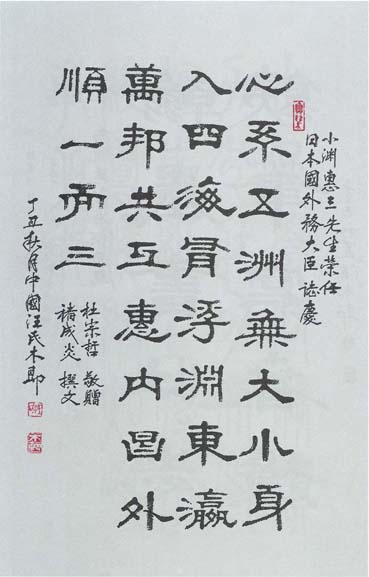 小渊惠三先生榮任
日本國外務大臣誌慶
心系五洲無大小身
入四海浮淵東瀛
萬邦共互惠内昌外
順一而三
杜宗哲 敬贈
褚成炎 撰文
丁丑秋月中國汪氏木